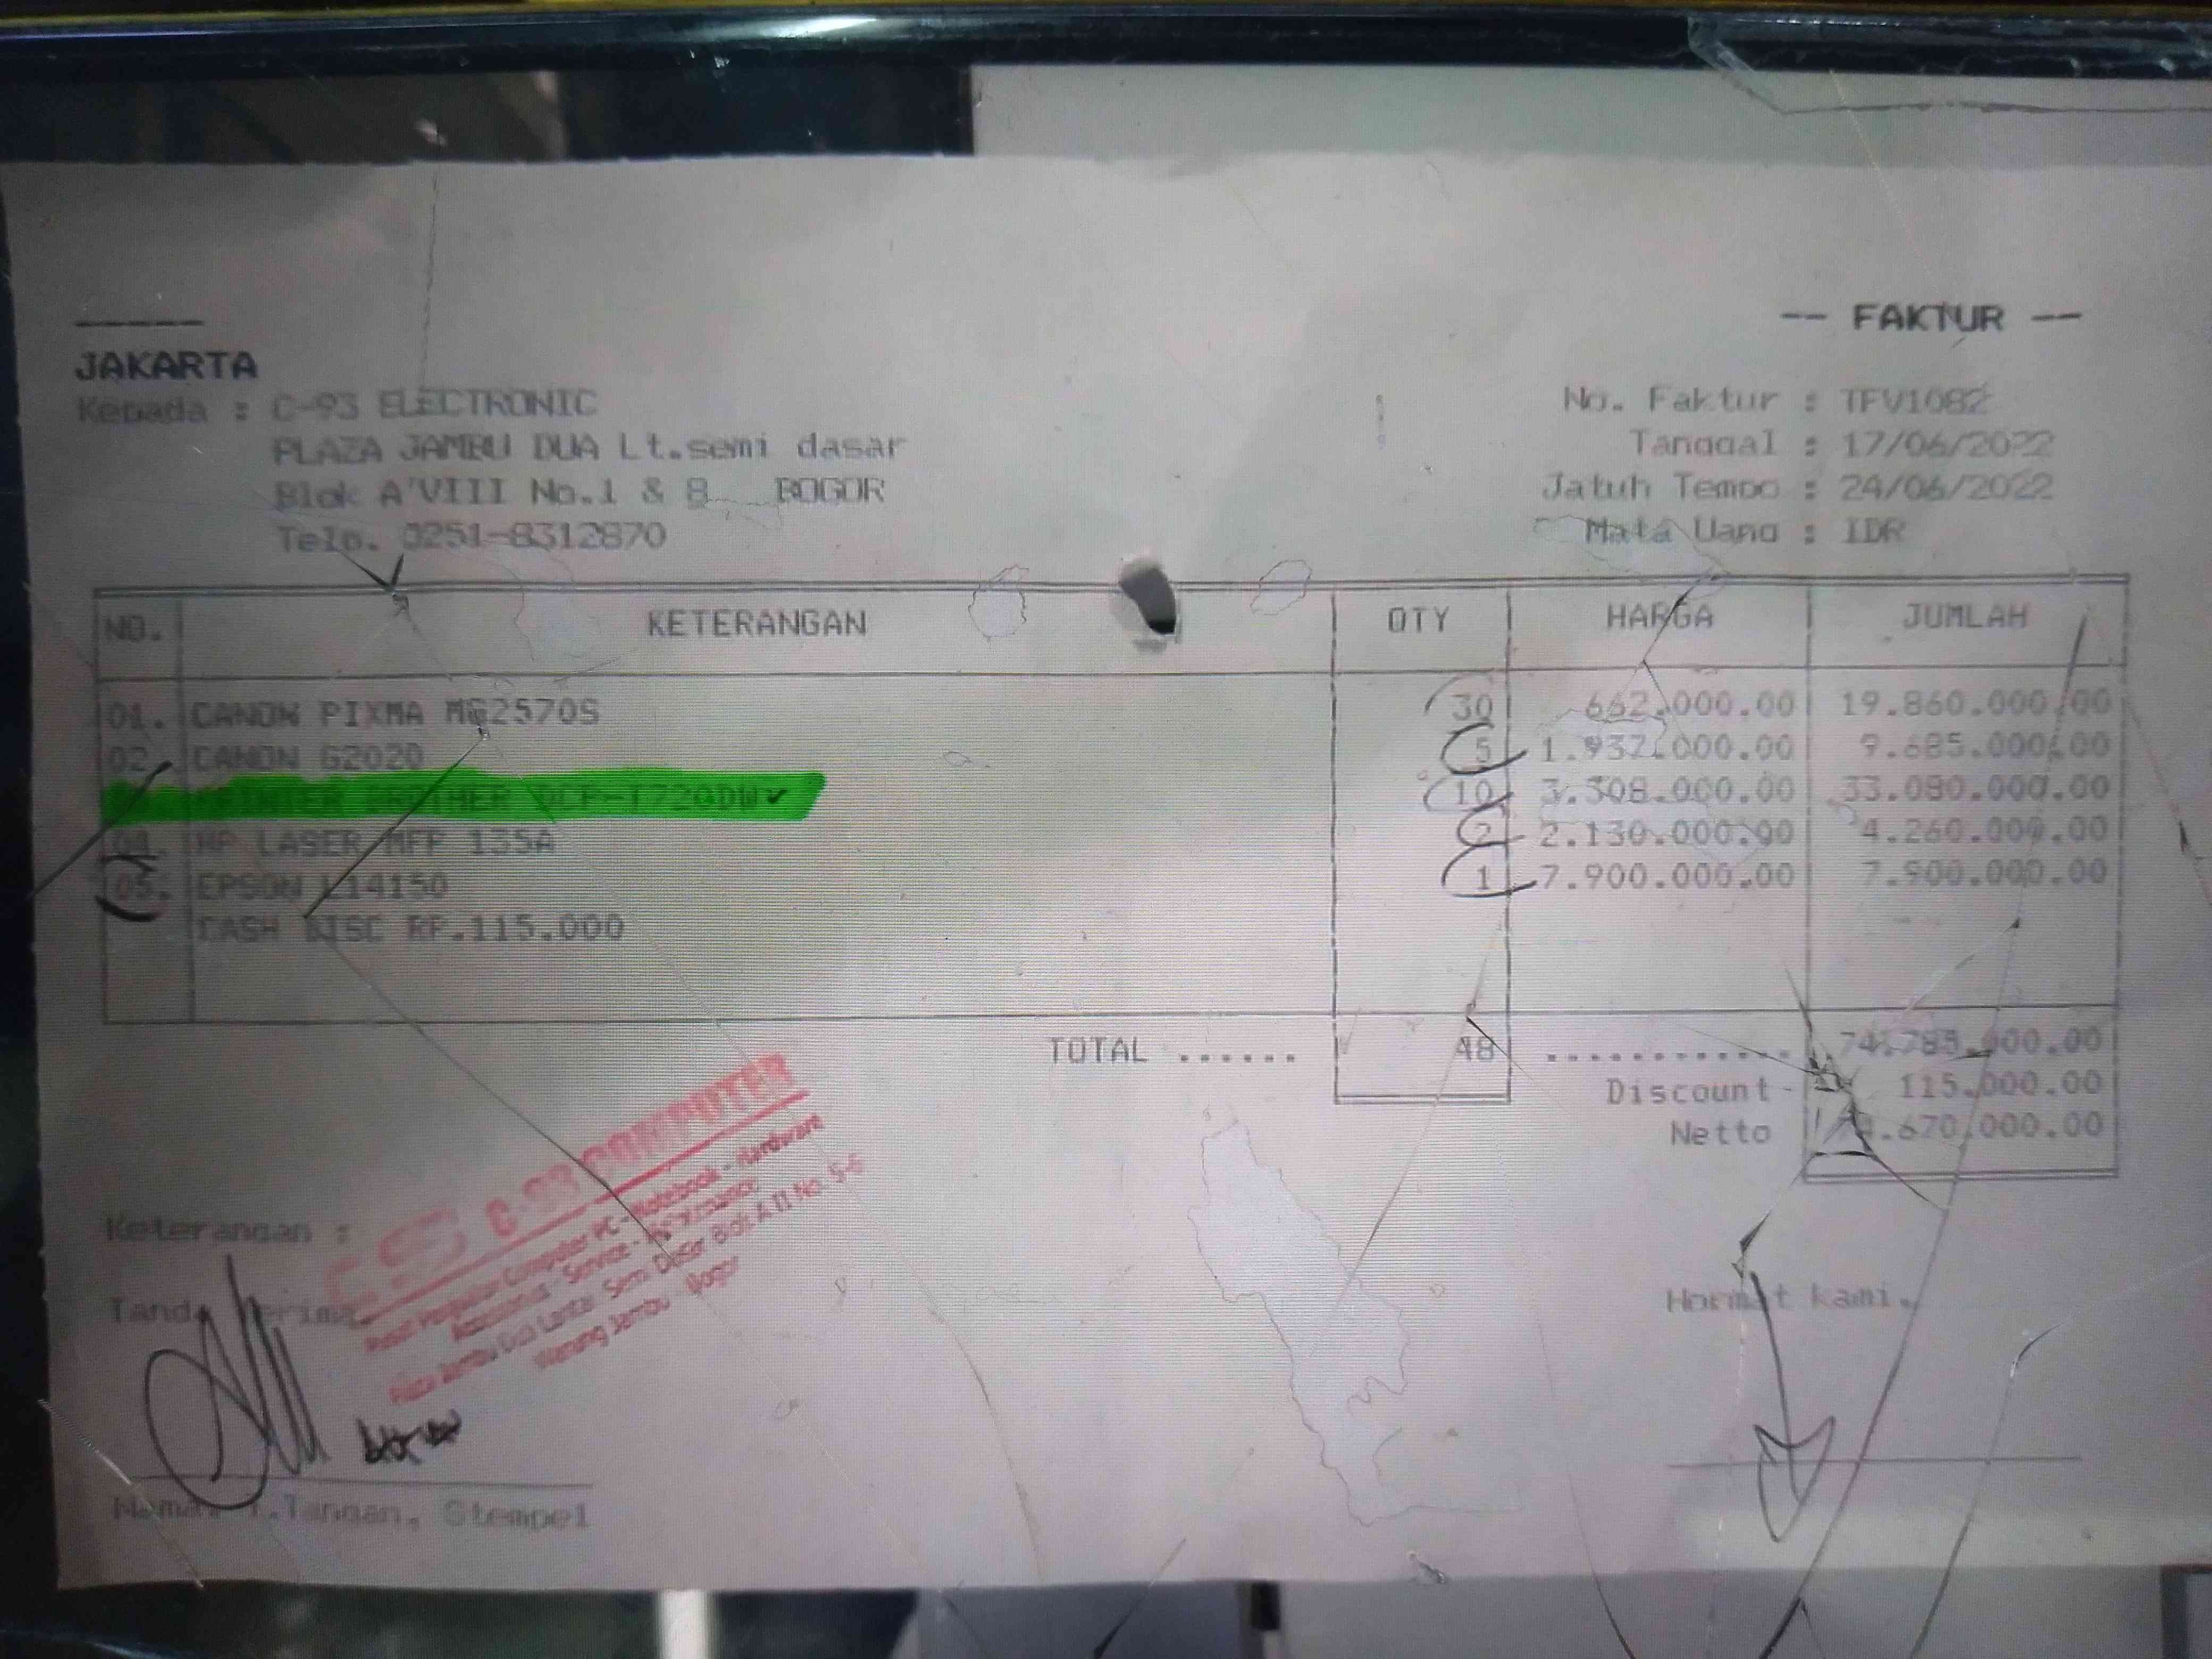 -- FAKTUR --
JAKARTA
Kepada : C-93 ELECTRONIC
PLAZA JAMBU DUA Lt.semi dasar
Blok A'VIII No.1 & 8 BOGOR
Telp. 0251-8312870
No. Faktur : TFV1082
Tanggal : 17/06/2022
Jatuh Tempo : 24/06/2022
Mata Uang : IDR
NO. KETERANGAN QTY HARGA JUMLAH
01. CANON PIXMA MG2570S 30 662.000.00 19.860.000.00
02. CANON G2020 5 1.937.000.00 9.685.000.00
PRINTER BROTHER DCP-T720DW 10 3.308.000.00 33.080.000.00
04. HP LASER MFP 135A 2 2.130.000.00 4.260.000.00
05. EPSON L14150 1 7.900.000.00 7.900.000.00
CASH DISC RP.115.000
TOTAL ...... 48 ............ 74.785.000.00
Discount - 115.000.00
Netto 74.670.000.00
C-93 COMPUTER
Pusat Penjualan Computer PC - Notebook - Hardware
Accessories - Service - Maintenance
Plaza Jambu Dua Lantai Semi Dasar Blok A II No. 5-6
Warung Jambu - Bogor
Keterangan :
Tanda Terima
Hormat kami.
Nama, T.Tangan, Stempel